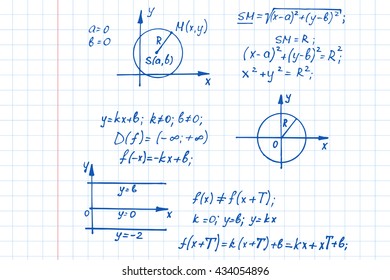 a=0
в=0
y
M(x,y)
R
S(a,в)
x
SM=√(x-a)²+(y-в)²;
SM=R;
(x-a)²+(y-в)²=R²;
x²+y²=R²;
y=kx+в; k≠0; в≠0;
D(f)=(-∞;+∞)
f(-x)=-kx+в;
y
R
O
x
y
y=в
O
y=0
x
y=-2
f(x)≠f(x+T);
k=0; y=в; y=kx
f(x+T)=k(x+T)+в=kx+xT+в;
shutterstock.com · 434054896